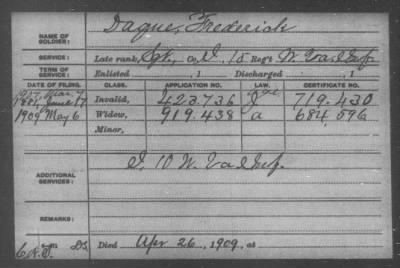 NAME OF SOLDIER: Dague, Frederick
SERVICE: Late rank, Sgt., Co. D, 15 Reg't W. Va. Inf.
TERM OF SERVICE: Enlisted , 1 Discharged , 1
DATE OF FILING. CLASS. APPLICATION NO. LAW. CERTIFICATE NO.
1907, Mar. 7
1881, June 17 Invalid, 423.736 719.430
1909 May 6 Widow, 919.438 a 684,596
Minor,
ADDITIONAL SERVICES: D. 10 W. Va. Inf.
REMARKS:
Died Apr 26, 1909, at